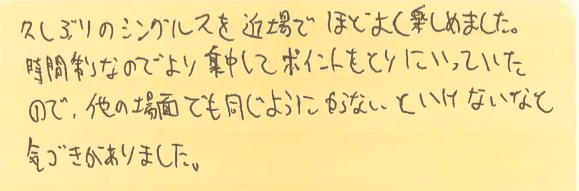 久しぶりのシングルスを近場でほどよく楽しめました。
時間制なのでより集中してポイントをとりにいっていた
ので、他の場面でも同じようにやらないといけないなと
気づきがありました。